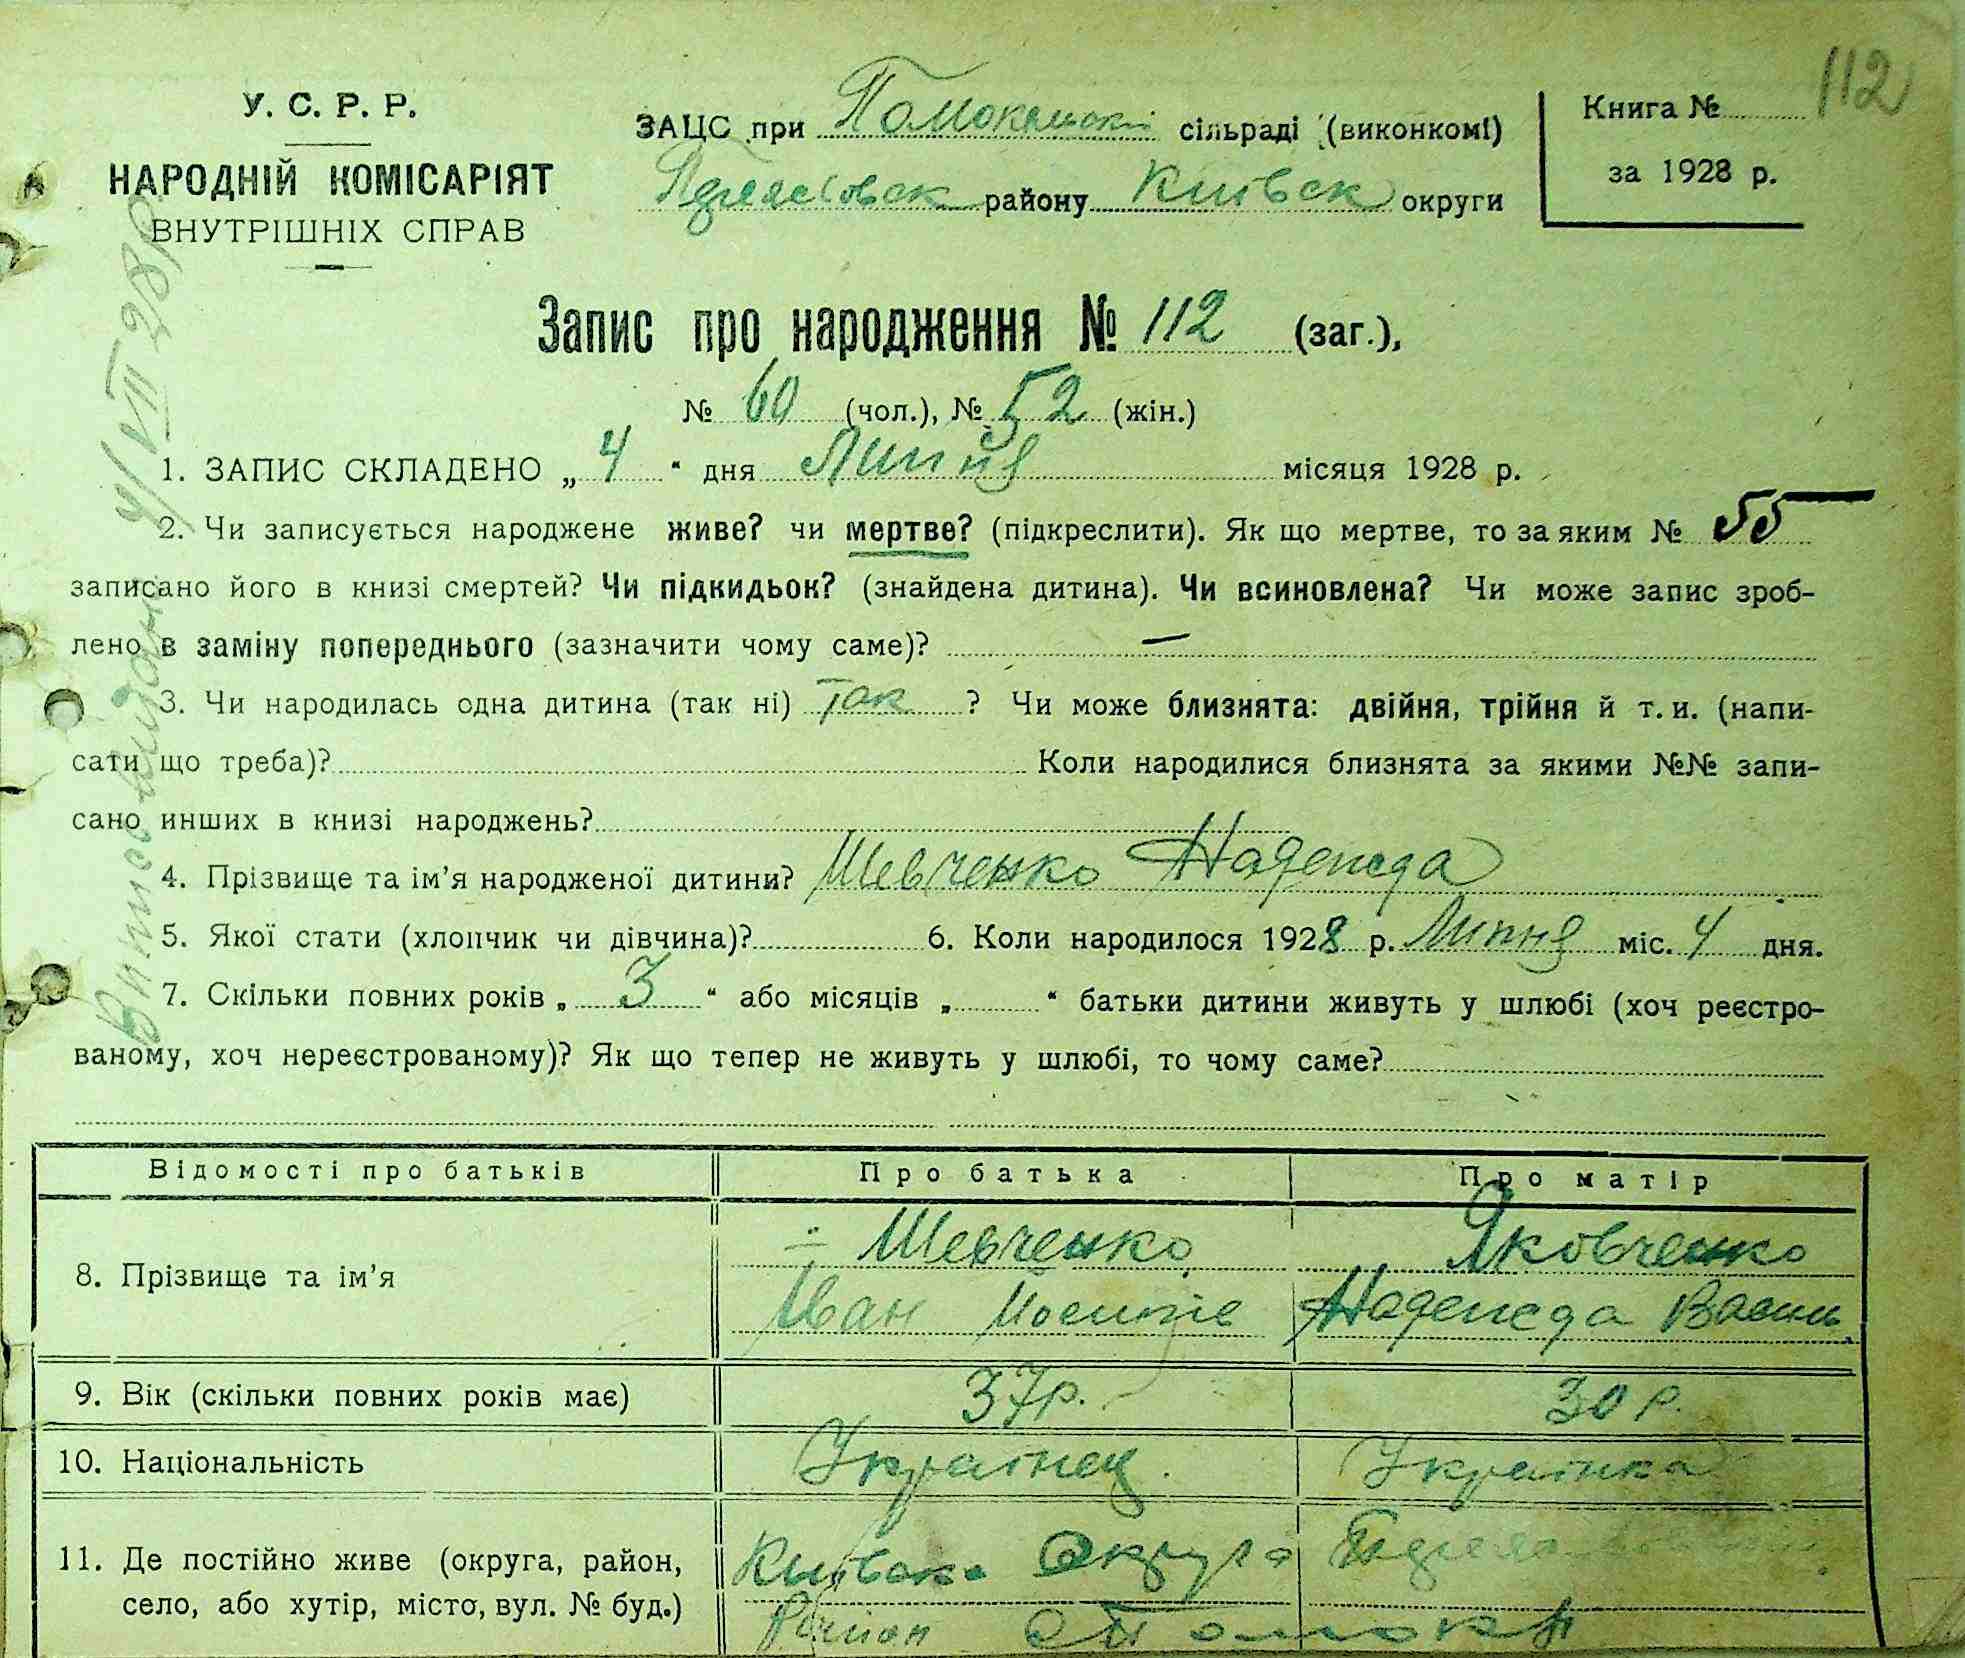 112
У. С. Р. Р.
НАРОДНІЙ КОМІСАРІЯТ
ВНУТРІШНІХ СПРАВ
ЗАЦС при сільраді (виконкомі)
району Київськ округи
Книга №
за 1928 р.
Запис про народження № 112 (заг.),
№ 60 (чол.), № 52 (жін.)
1. ЗАПИС СКЛАДЕНО „ 4 “ дня Липня місяця 1928 р.
2. Чи записується народжене живе? чи мертве? (підкреслити). Як що мертве, то за яким № 55
записано його в книзі смертей? Чи підкидьок? (знайдена дитина). Чи всиновлена? Чи може запис зроб-
лено в заміну попереднього (зазначити чому саме)? —
3. Чи народилась одна дитина (так ні) так ? Чи може близнята: двійня, трійня й т. и. (напи-
сати що треба)? Коли народилися близнята за якими №№ запи-
сано инших в книзі народжень?
4. Прізвище та ім’я народженої дитини? Шевченко Надежда
5. Якої стати (хлопчик чи дівчина)? 6. Коли народилося 1928 р. Липня міс. 4 дня.
7. Скільки повних років „ 3 “ або місяців „ “ батьки дитини живуть у шлюбі (хоч реєстро-
ваному, хоч нереєстрованому)? Як що тепер не живуть у шлюбі, то чому саме?
Відомості про батьків Про батька Про матір
8. Прізвище та ім’я Шевченко Яковченко
Іван Надежда Васил.
9. Вік (скільки повних років має) 37р. 30 р.
10. Національність Українец. Українка
11. Де постійно живе (округа, район, Округа
село, або хутір, місто, вул. № буд.) Район